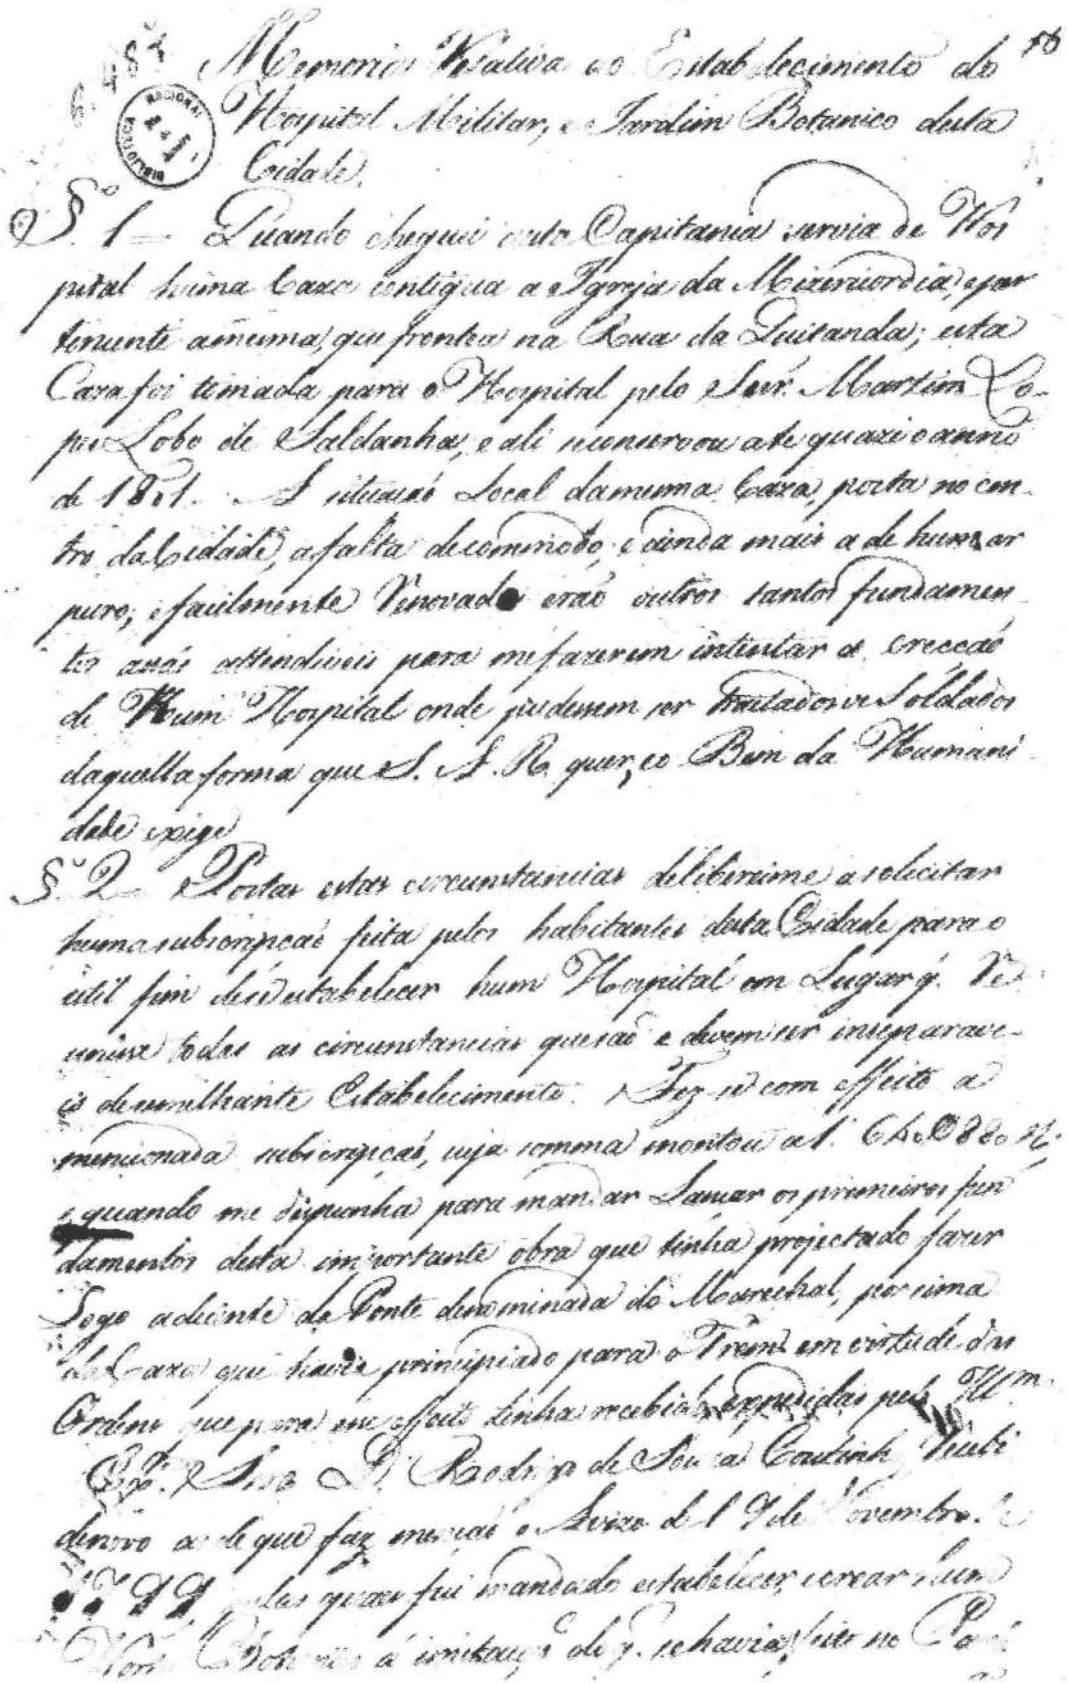 Memoria Relativa ao Estabelecimento do
Hospital Militar, e Jardim Botanico desta
Cidade.
§.º 1 = Quando cheguei a esta Capitania servia de Hos
pital huma Caza contigua a Igreja da Mizericordia, e per
tencente amesma, que frontea na Rua da Quitanda; esta
Caza foi tomada para o Hospital pelo Snr. Martim Lo-
pes Lobo de Saldanha, e ali se conservou ate quazi o anno
de 1801. A situacaõ Local damesma Caza, posta no cen-
tro da Cidade, a falta de commodo, e ainda mais a de hum ar
puro, e facilmente Renovado eraõ outros tantos fundamen
tos assás attendiveis para me fazerem intentar a erecçaõ
de Hum Hospital onde pudessem ser tratados os Soldados
daquella forma que S. A. R. quer, e o Bem da Humani
dade exige
§.º 2 = Postas estas circunstancias deliberei me a solicitar
huma subscripçaõ feita pelos habitantes desta Cidade para o
util fim de se estabelecer hum Hospital em Lugar q. Re-
unisse todas as circunstancias que saõ e devem ser inseparave-
is de semilhante Estabelecimento. Fez se com effeito a
mencionada subscripçaõ, cuja somma montou a
e quando me dispunha para mandar Lançar os primeiros fun
damentos desta importante obra que tinha projectado fazer
Logo adiente da Ponte denominada do Marechal, por sima
da Caza que havia principiado para o Trem em virtude das
Ordens que para esse effeito tinha recebido, expedidas pelo Illm.
Exm. Snr. D. Rodrigo de Souza Coutinho, Recebi
denovo as de que faz mençaõ o Avizo de 19 de Novembro de
1799 pelas quaes fui mandado estabelecer, e crear hum
Horto Botanico á imitaçaõ do q. se havia feito no Pará